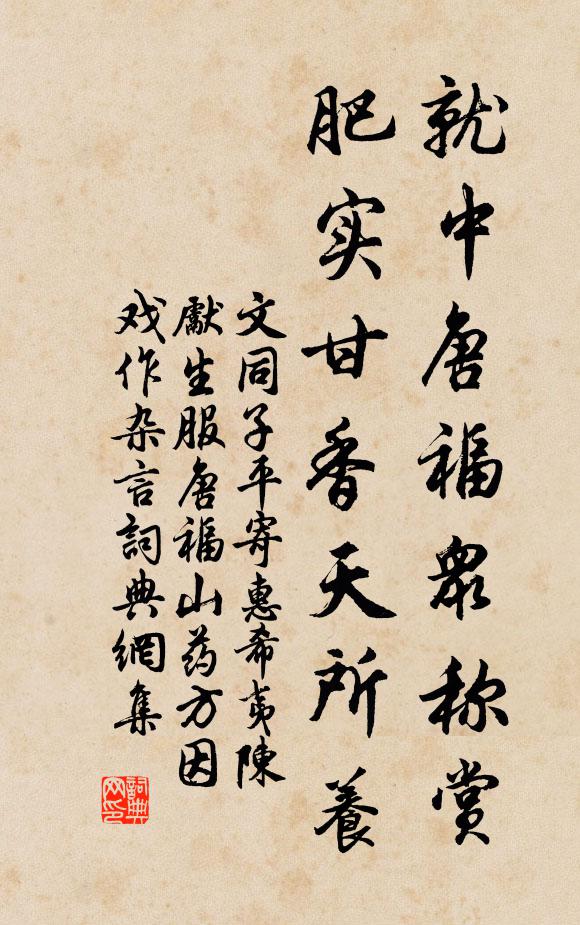 就中唐福眾称赏
肥实甘香天所養
文同子平寄惠希夷陳
獻生服唐福山药方因
戏作杂言詞典網集
詞典
网印